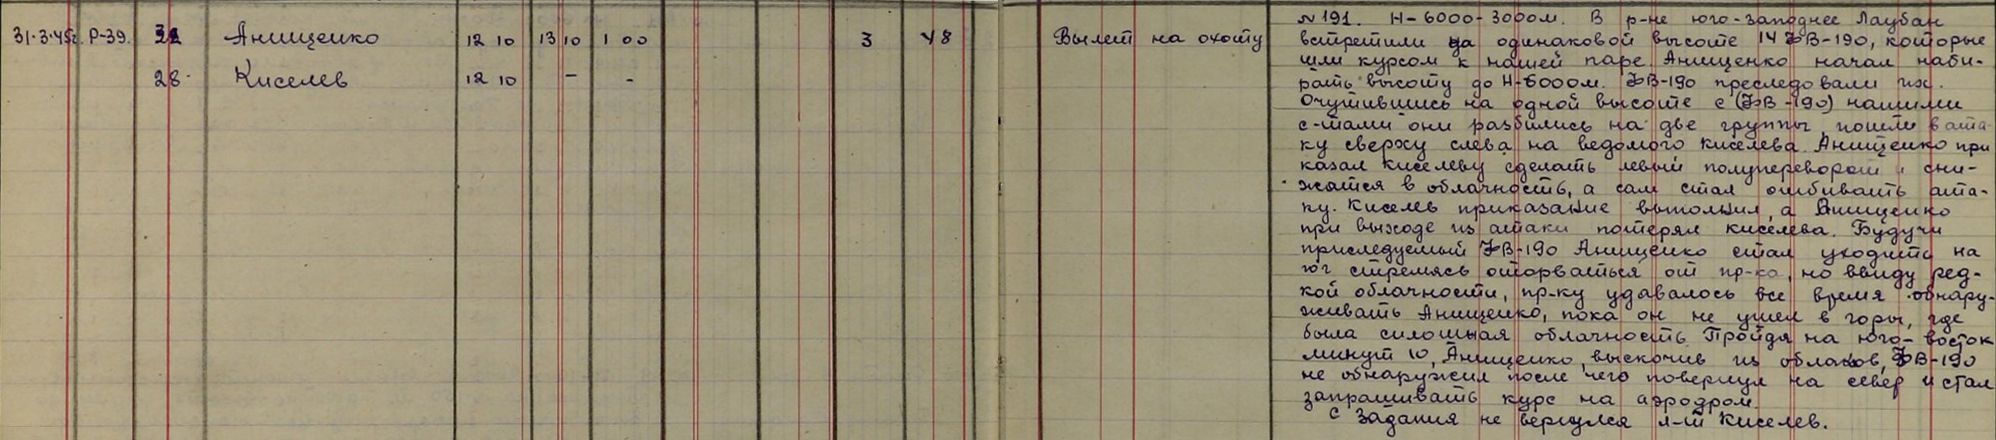 31.3.45г. Р-39. 32 Анищенко 12 10 13 10 1 00 3 48 Вылет на охоту
28 Киселев 12 10 - -
№191. Н-6000-3000м. В р-не юго-западнее Лаубан
встретили на одинаковой высоте 14 ФВ-190, которые
шли курсом к нашей паре. Анищенко начал наби-
рать высоту до Н-6000м. ФВ-190 преследовали их.
Очутившись на одной высоте с (ФВ-190) нашими
с-тами они разбились на две группы, пошли в ата-
ку сверху слева на ведомого Киселева. Анищенко при
казал Киселеву сделать левый полупереворот и сни-
жатся в облачность, а сам стал отбивать ата-
ку. Киселев приказание выполнил, а Анищенко
при выходе из атаки потерял Киселева. Будучи
приследуемый ФВ-190 Анищенко стал уходить на
юг стремясь оторваться от пр-ка, но ввиду ред-
кой облачности, пр-ку удавалось все время обнару-
живать Анищенко, пока он не ушел в горы, где
была сплошная облачность. Пройдя на юго-восток
минут 10, Анищенко, выскочив из облаков, ФВ-190
не обнаружил после чего повернул на север и стал
запрашивать курс на аэродром.
С задания не вернулся л-т Киселев.